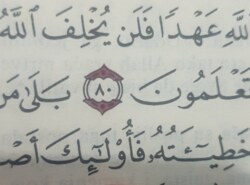 للَّهِ عَهْدًا فَلَن يُخْلِفَ ٱللَّهُ
تَعْلَمُونَ ٨٠ بَلَىٰ مَن
خَطِيٓـَٔتُهُۥ فَأُو۟لَـٰٓئِكَ أَصْ